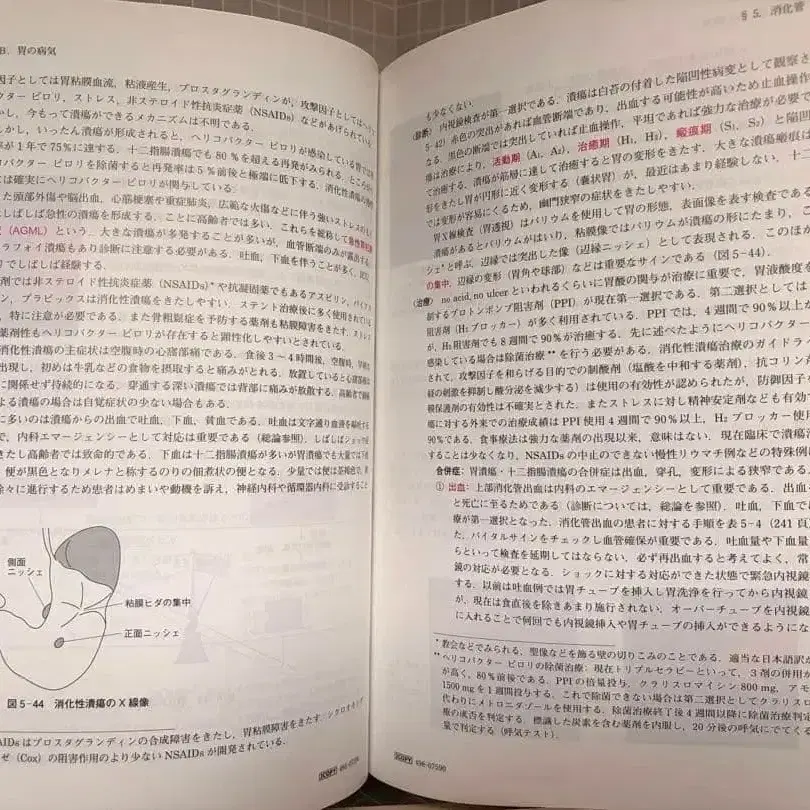 B. 胃の病気
因子としては胃粘膜血流，粘液産生，プロスタグランディンが，攻撃因子としてはヘリコ
クター ピロリ，ストレス，非ステロイド性抗炎症薬（NSAIDs）などがあげられている
かし，今もって潰瘍ができるメカニズムは不明である．
しかし，いったん潰瘍が形成されると，ヘリコバクター ピロリが感染している胃では
が1年で75％に達する．十二指腸潰瘍でも80％を超える再発がみられる．ところが
バクター ピロリを除菌すると再発率は5％前後と極端に低下する．消化性潰瘍の
には確実にヘリコバクター ピロリが関与している．
た頭部外傷や脳出血，心筋梗塞や重症肺炎，広範な火傷などに伴う強いストレスの
しばしば急性の潰瘍を形成する．ことに高齢者では多い．これらを総称して急性胃粘膜
（AGML）という．大きな潰瘍が多発することが多いが，血管断端のみが露出する
ラフォイ潰瘍もあり診断に注意する必要がある．吐血，下血を伴うことが多く，
りでしばしば経験する．
剤では非ステロイド性抗炎症薬（NSAIDs）*や抗凝固薬でもあるアスピリン，バイア
ン，プラビックスは消化性潰瘍をきたしやすい．ステント治療後に多く使用されている
，特に注意が必要である．また骨粗鬆症を予防する薬剤も粘膜障害をきたす．ストレス
薬剤性もヘリコバクター ピロリが存在すると顕性化しやすいとされている．
消化性潰瘍の主症状は空腹時の心窩部痛である．食後3〜4時間後，空腹時，早朝に
出現し，初めは牛乳などの食物を摂取すると痛みがとれる．放置していると心窩部痛は
に関係せず持続的になる．穿通する深い潰瘍では背部に痛みが放散する．高齢者で
よる潰瘍の場合は自覚症状の少ない場合もある．
に多いのは潰瘍からの出血で吐血，下血，貧血である．吐血は文字通り血液を嘔吐する
で，内科エマージェンシーとして対応は重要である（総論参照）．しばしばショック
きたし高齢者では致命的である．下血は十二指腸潰瘍が多いが胃潰瘍でも大量では下血
便が黒色となりメレナと称するのりの佃煮状の便となる．少量では便は茶褐色で，
徐々に進行するため患者はめまいや動機を訴え，神経内科や循環器内科に受診すること
側面
ニッシェ
粘膜ヒダの集中
正面ニッシェ
図5-44 消化性潰瘍のX線像
AIDsはプロスタグランディンの合成障害をきたし，胃粘膜障害をきたす．シクロオキシゲ
ゼ（Cox）の阻害作用のより少ないNSAIDsが開発されている．
JCOPY 498-07590
§5. 消化管
も少なくない．
（診断） 内視鏡検査が第一選択である．潰瘍は白苔の付着した陥凹性病変として観察さ
5-42）赤色の突出があれば血管断端であり，出血する可能性が高いため止血操作
なる．黒色の断端では突出していれば止血操作，平坦であれば強力な治療が必要で
瘍は治療により，活動期（A₁，A₂），治癒期（H₁，H₂），瘢痕期（S₁，S₂）と陥凹
て治癒する．潰瘍が筋層に達して治癒すると胃の変形をきたす．大きな潰瘍瘢痕は
形をきたし胃が円形に近く変形する（嚢状胃）が，最近はあまり経験しない．十二
では変形が容易にくるため，幽門狭窄の症状をきたしやすい．
胃X線検査（胃透視）はバリウムを使用して胃の形態，表面像を表す検査である
潰瘍があるとバリウムがはいり，粘膜像ではバリウムが潰瘍の形にたまり，こ
シェ*と呼ぶ，辺縁では突出した像（辺縁ニッシェ）として表現される．このほか
の集中，辺縁の変形（胃角や球部）などは重要なサインである（図5-44）．
（治療） no acid, no ulcerといわれるくらいに胃酸の関与が治療に重要で，胃液酸度を
制するプロトンポンプ阻害剤（PPI）が現在第一選択である．第二選択としては
阻害剤（H₂ブロッカー）が多く利用されている．PPIでは，4週間で90％以上が
が，H₂阻害剤でも8週間で90％が治癒する．先に述べたようにヘリコバクター
感染している場合は除菌治療**を行う必要がある．消化性潰瘍治療のガイドライ
されて，攻撃因子を和らげる目的での制酸剤（塩酸を中和する薬剤），抗コリン剤
経の刺激を抑制し酸分泌を減少する）は使用の有効性が認められたが，防御因子を
膜保護剤の有効性は不確実とされた．またストレスに対し精神安定剤なども有効で
瘍に対する外来での治療成績はPPI使用4週間で90％以上，H₂ブロッカー使用
90％である．食事療法は強力な薬剤の出現以来，意味はない．現在臨床で潰瘍治
することは少なくなり，NSAIDsの中止のできない慢性リウマチ例などの特殊例に
合併症：胃潰瘍・十二指腸潰瘍の合併症は出血，穿孔，変形による狭窄である．
① 出血：上部消化管出血は内科のエマージェンシーとして重要である．出血
と死亡に至るためである（診断については，総論を参照）．吐血，下血で出
療が第一選択となった．消化管出血の患者に対する手順を表5-4（241頁）
た．バイタルサインをチェックし血管確保が重要である．吐血量や下血量
らといって検査を延期してはならない．必ず再出血すると考えてよく，常
鏡の対応が必要となる．ショックに対する対応ができた状態で緊急内視鏡
する．以前は吐血例では胃チューブを挿入し胃洗浄を行ってから内視鏡
が，現在は食直後を除きあまり施行されない．オーバーチューブを内視鏡
に入れることで何回でも内視鏡挿入や胃チューブの挿入ができるようにな
*教会などでみられる，聖像などを飾る壁の切りこみのことである．適当な日本語訳が
**ヘリコバクター ピロリの除菌治療：現在トリプルセラピーといって，3剤の併用が
が高く，80％前後である．PPIの倍量投与，クラリスロマイシン800 mg，アモ
1500 mgを1週間投与する．これで除菌できない場合は第二選択としてクラリスロ
代わりにメトロニダゾールを使用する．除菌治療終了後4週間以降に除菌治療判定
療の成否を判定する．標識した炭素を含む薬剤を内服し，20分後の呼気にでてくる
量で判定する（呼気テスト）．
JCOPY 498-07590